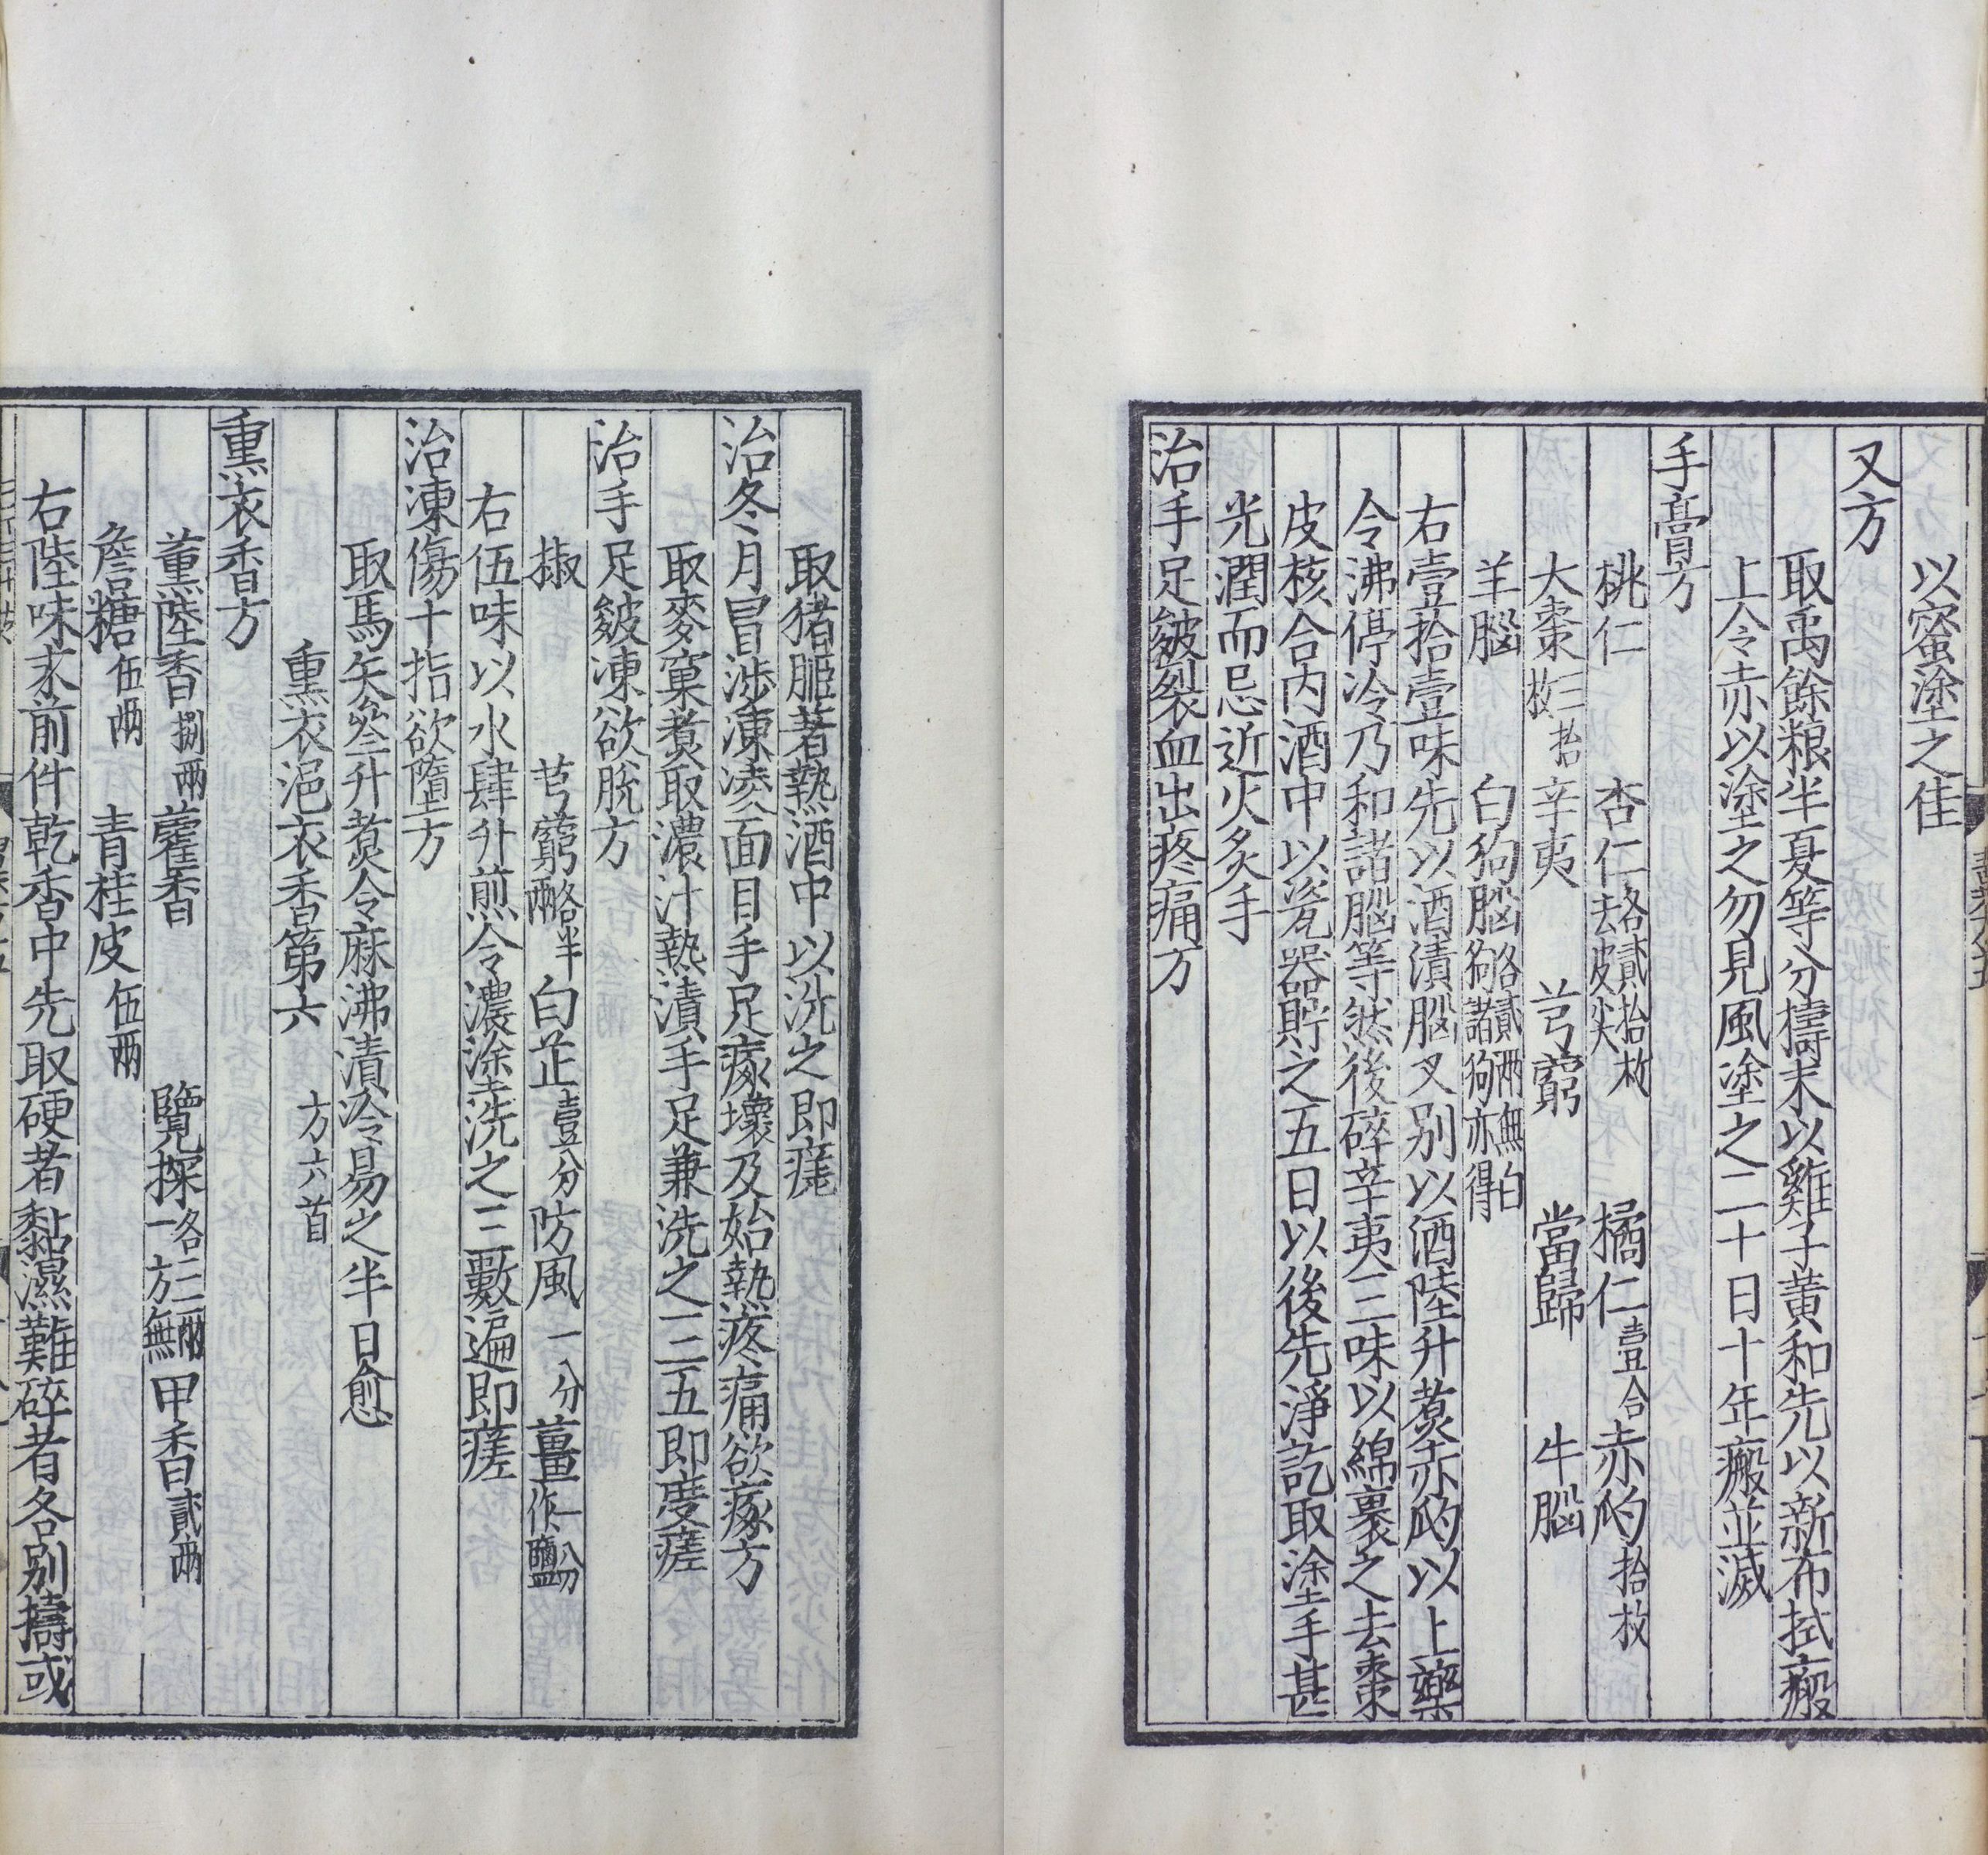 以蜜塗之佳
又方
取禹餘粮半夏等分擣末以雞子黃和先以新布拭瘢
上令赤以塗之勿見風塗之二十日十年瘢並滅
手膏方
桃仁 杏仁各貳拾枚去皮尖 橘仁壹合 赤𠣏拾枚
大棗三拾枚 辛夷 芎藭 當歸 牛腦
羊腦 白狗腦各貳兩無白狗諸狗亦得
右壹拾壹味先以酒漬腦又別以酒陸升煑赤𠣏以上藥
令沸停冷乃和諸腦等然後碎辛夷三味以綿裹之去棗
皮核合內酒中以瓷器貯之五日以後先淨訖取塗手甚
光潤而忌近火炙手
治手足皴裂血出疼痛方
取猪胵著熱酒中以洗之即瘥
治冬月冒涉凍凌面目手足瘃壞及始熱疼痛欲瘃方
取麥窠煑取濃汁熱漬手足兼洗之三五即度瘥
治手足皴凍欲脫方
椒 芎藭各半兩 白芷壹分 防風一分 薑一分作鹽
右伍味以水肆升煎令濃塗洗之三數遍即瘥
治凍傷十指欲墮方
取馬矢叁升煑令麻沸漬冷易之半日愈
熏衣浥衣香第六 方六首
熏衣香方
薰陸香捌兩 藿香 覽探各三兩一方無 甲香貳兩
詹糖伍兩 青桂皮伍兩
右陸味末前件乾香中先取硬者黏濕難碎者各別擣或